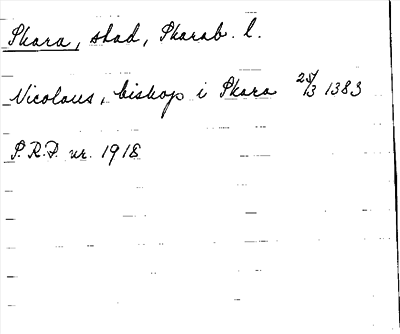 Skara, stad, Skarab. l.
Nicolaus, biskop i Skara 25/3 1383
S.R.P. nr. 1918